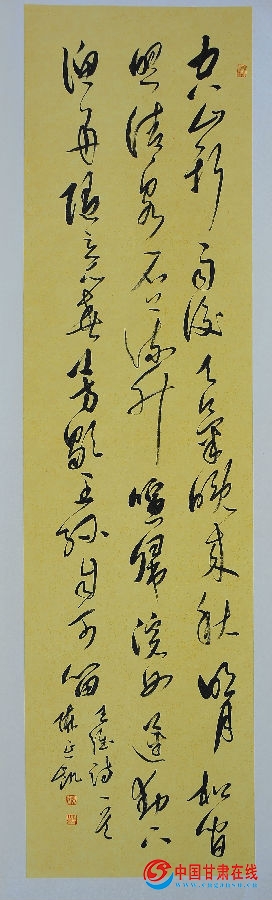 空山新雨後天氣晚來秋明月松間
照清泉石上流竹喧歸浣女蓮動下
漁舟隨意春芳歇王孫自可留
王維詩一首
中国甘肃在线